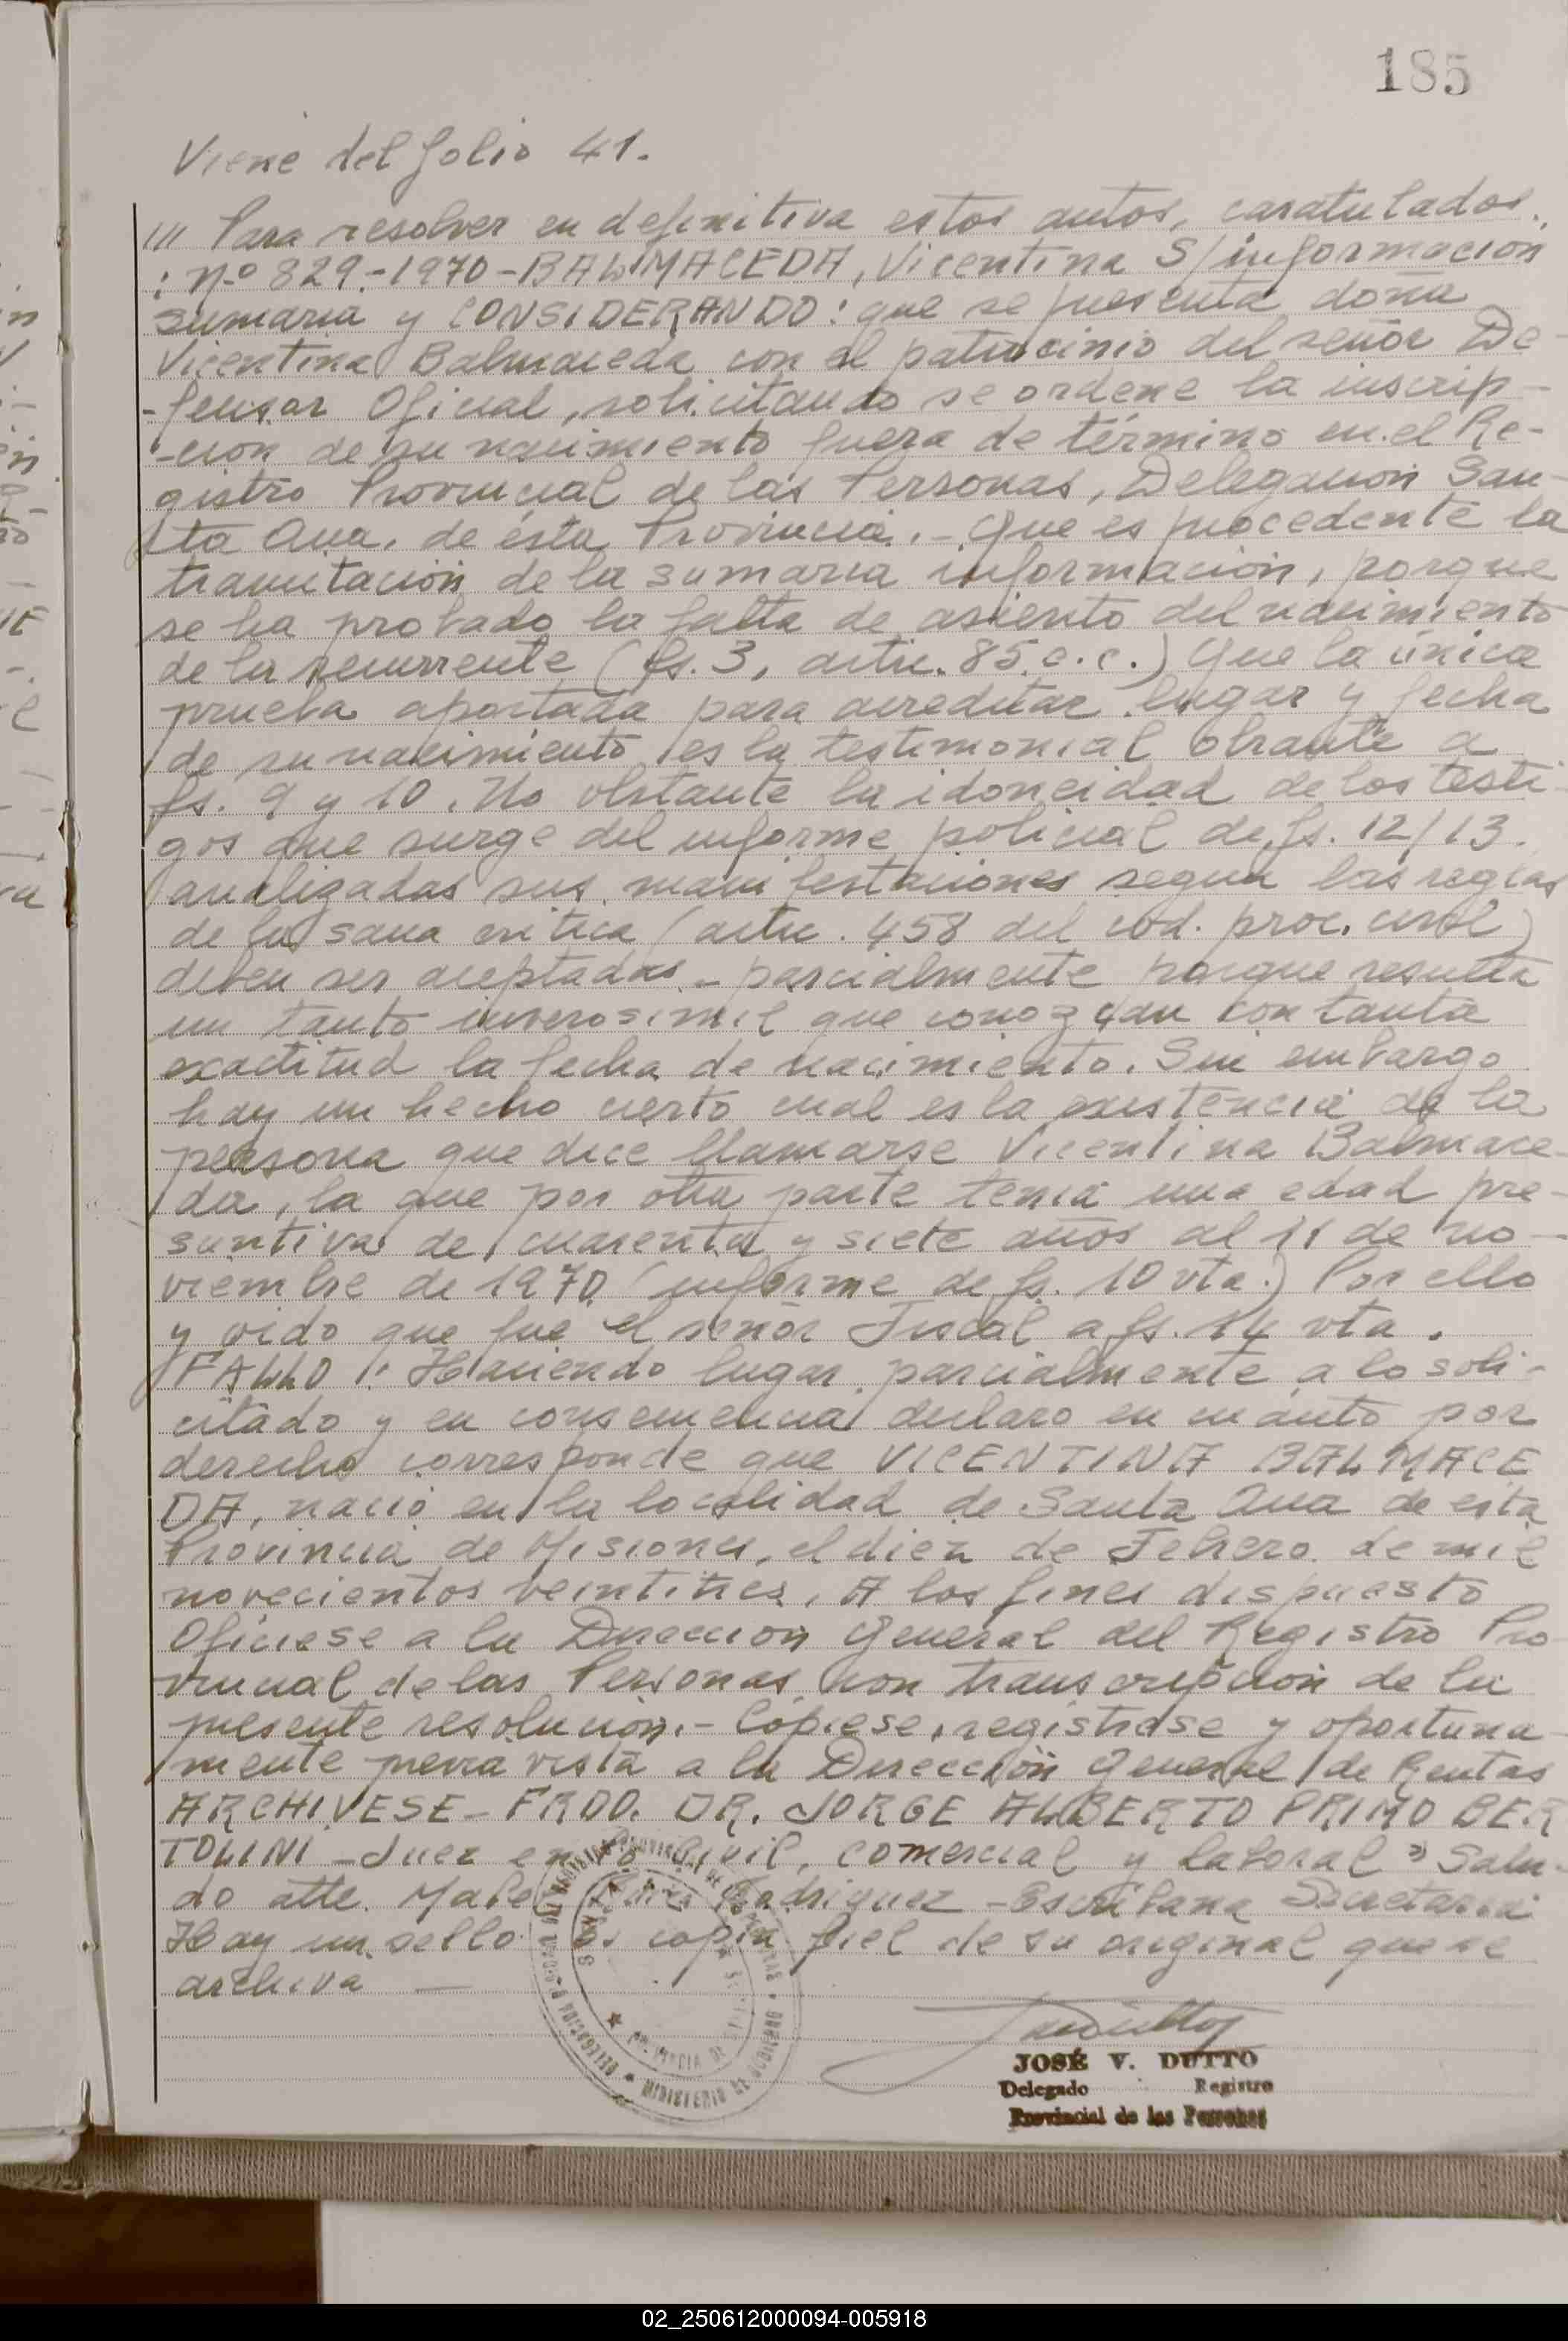 185
Viene del folio 41.
/// Para resolver en definitiva estos autos, caratulados.
: Nº 829.-1970-BALMACEDA, Vicentina S/información
sumaria y CONSIDERANDO: que se presenta doña
Vicentina Balmaceda con el patrocinio del señor De-
-fensor Oficial, solicitando se ordene la inscrip-
-cion de su nacimiento fuera de término en el Re-
gistro Provincial de las Personas, Delegacion San-
ta Ana, de ésta Provincia.- Que es procedente la
tramitacion de la sumaria informacion, porque
se ha probado la falta de asiento del nacimiento
de la recurrente (fs. 3, artic. 85 c.c.) Que la única
prueba aportada para acreditar lugar y fecha
de su nacimiento es la testimonial obrante a
fs. 9 y 10. No obstante la idoneidad de los testi-
gos que surge del informe policial de fs. 12/13.
analizadas sus manifestaciones segun las reglas
de la sana critica (artic. 458 del cod. proc. civil)
deben ser aceptadas - parcialmente porque resulta
un tanto inverosimil que conozcan con tanta
exactitud la fecha de nacimiento. Sin embargo
hay un hecho cierto cual es la existencia de la
persona que dice llamarse Vicentina Balmace-
da, la que por otra parte tenia una edad pre-
suntiva de cuarenta y siete años al 11 de no-
viembre de 1970 (informe de fs. 10 vta.) Por ello
y oido que fue el señor Fiscal a fs. 14 vta.
FALLO: Haciendo lugar parcialmente a lo soli-
citado y en consecuencia declaro en cuanto por
derecho corresponde que VICENTINA BALMACE
DA, nació en la localidad de Santa Ana de esta
Provincia de Misiones, el diez de Febrero de mil
novecientos veintitres. A los fines dispuesto
Ofíciese a la Direccion General del Registro Pro-
vincial de las Personas con transcripcion de la
presente resolucion.- Cópiese, registrese y oportuna-
mente previa vista a la Dirección General de Rentas
ARCHIVESE - FRDO. DR. JORGE ALBERTO PRIMO BER
TOLINI - Juez en lo Civil, Comercial y Laboral" Salu-
do atte. Rodriguez - Escribana Secretaria
Hay un sello Es copia fiel de su original que se
archiva —
JOSÉ V. DUTTO
Delegado Registro
Provincial de las Personas
02_250612000094-005918